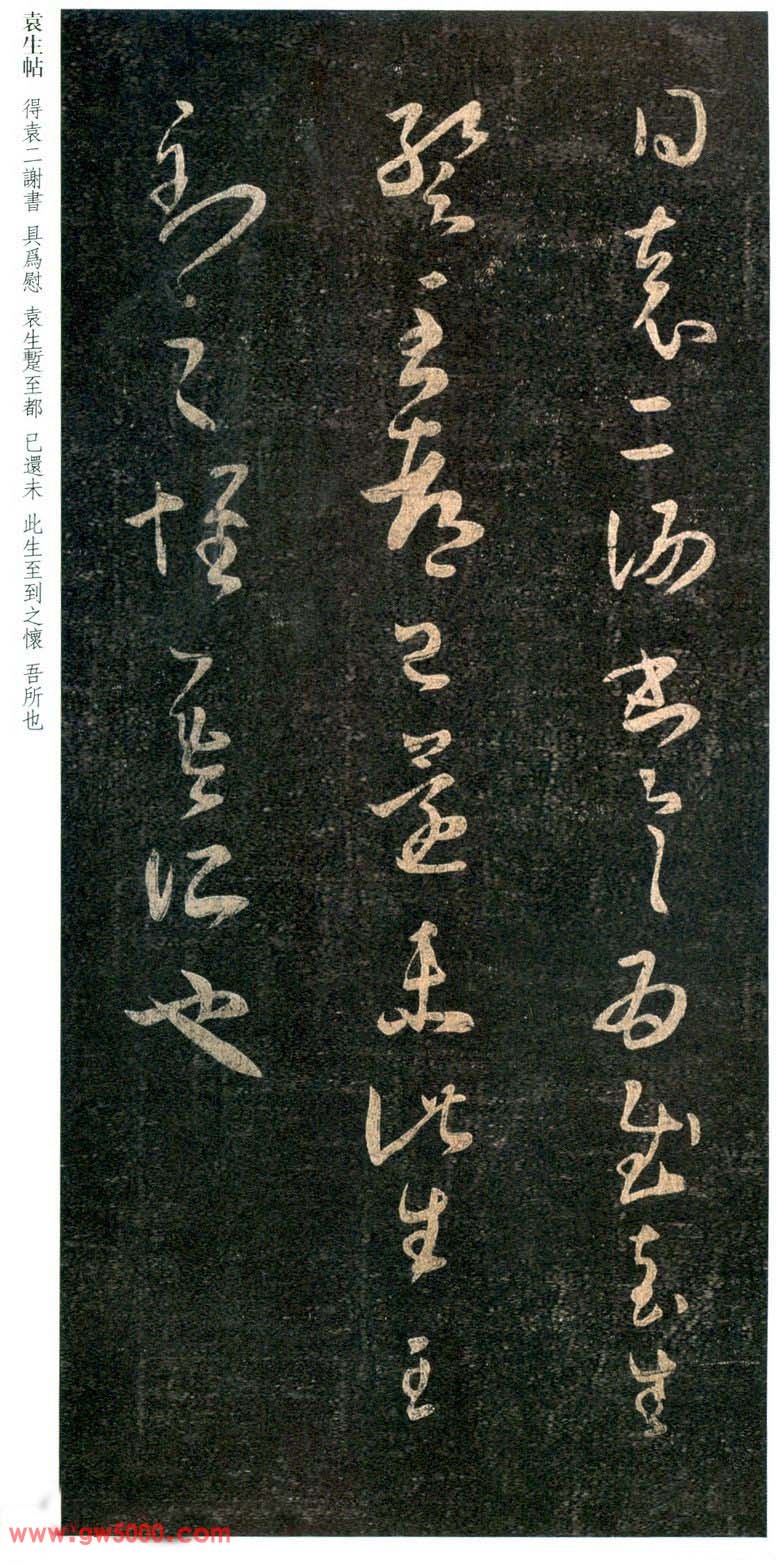 得袁二謝書具爲慰袁生
蹔至都已還未此生至
到之懷吾所也
袁生帖 得袁二謝書 具爲慰 袁生蹔至都 已還未 此生至到之懷 吾所也
www.gw5000.com